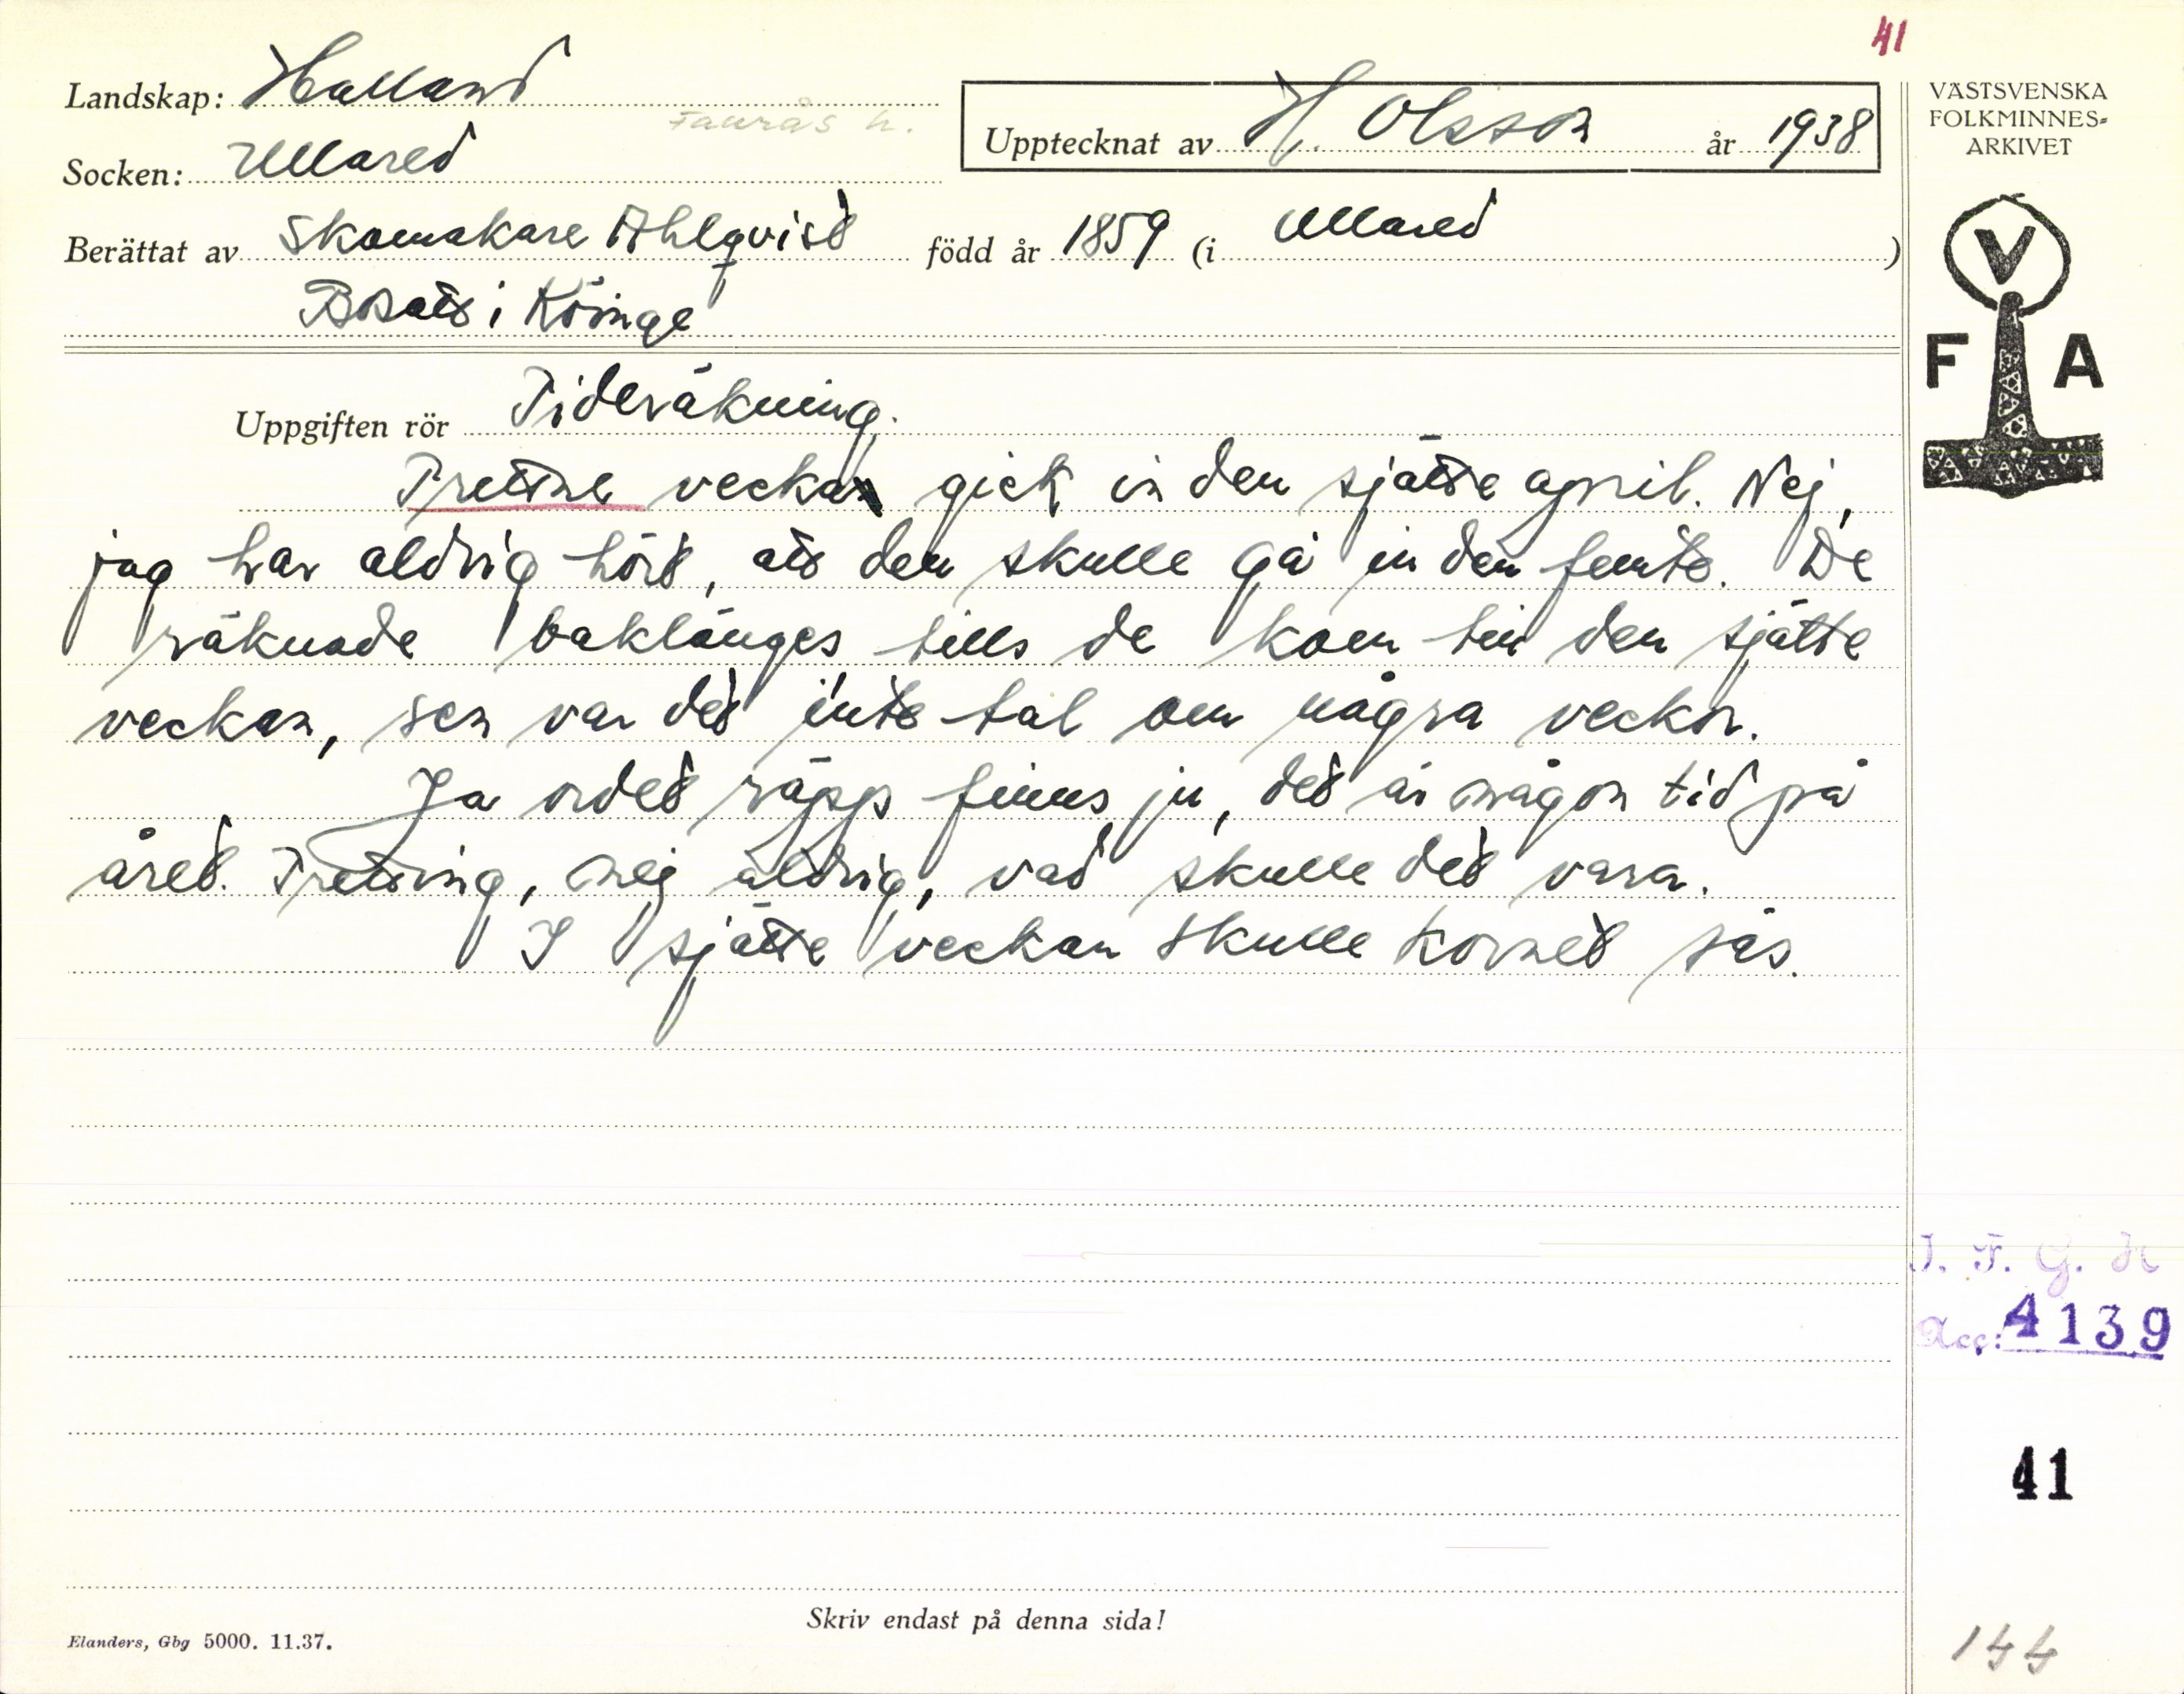 41
Landskap: Halland
Faurås h.
Upptecknat av H. Olsson år 1938
Socken: Ullared
Berättat av Skomakare Ahlqvist född år 1859 (i Ullared)
Bosatt i Köinge
VÄSTSVENSKA
FOLKMINNES-
ARKIVET
V
F A
Uppgiften rör Tideräkning.
Trettne veckan gick in den sjätte april. Nej,
jag har aldrig hört, att den skulle gå in den femte. De
räknade baklänges tills de kom till den sjätte
veckan, sen var det inte tal om några veckor.
Ja ordet räpp finns ju, det är någon tid på
året. Tretting, nej aldrig, vad skulle det vara.
I sjätte veckan skulle kornet sås.
I. F. G. H
Acc: 4139
41
Skriv endast på denna sida!
Elanders, Gbg 5000. 11.37.
144